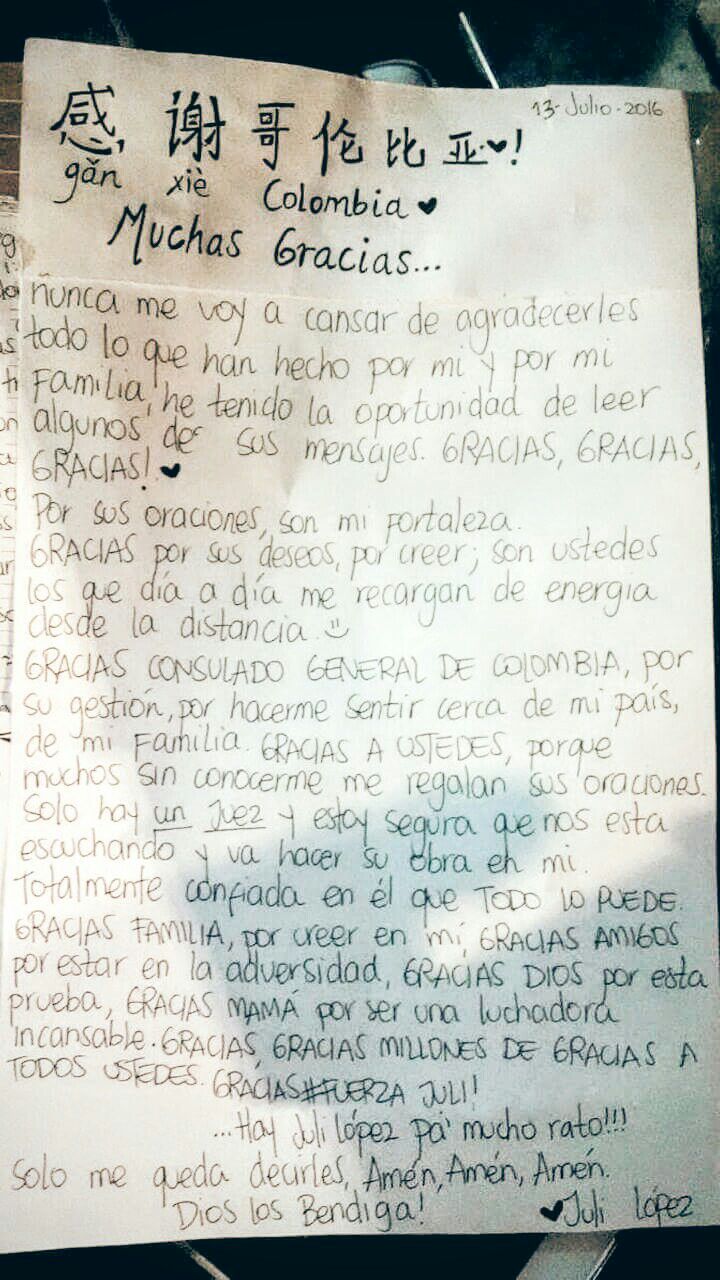 13-Julio-2016
感谢哥伦比亚♥!
gǎn xiè Colombia ♥
Muchas Gracias...
Nunca me voy a cansar de agradecerles
todo lo que han hecho por mi y por mi
Familia, he tenido la oportunidad de leer
algunos de sus mensajes. GRACIAS, GRACIAS,
GRACIAS! ♥
Por sus oraciones, son mi fortaleza.
GRACIAS por sus deseos, por creer; son ustedes
los que día a día me recargan de energia
desde la distancia. :)
GRACIAS CONSULADO GENERAL DE COLOMBIA, por
su gestión, por hacerme sentir cerca de mi país,
de mi Familia. GRACIAS A USTEDES, porque
muchos sin conocerme me regalan sus oraciones.
Solo hay un Juez y estoy segura que nos esta
escuchando y va hacer su obra en mi.
Totalmente confiada en él que TODO LO PUEDE.
GRACIAS FAMILIA, por creer en mí, GRACIAS AMIGOS
por estar en la adversidad, GRACIAS DIOS por esta
prueba, GRACIAS MAMÁ por ser una luchadora
incansable. GRACIAS, GRACIAS MILLONES DE GRACIAS A
TODOS USTEDES. GRACIAS #FUERZA JULI!
...Hay Juli López pa' mucho rato!!!
Solo me queda decirles, Amén, Amén, Amén.
Dios los Bendiga! ♥Juli López